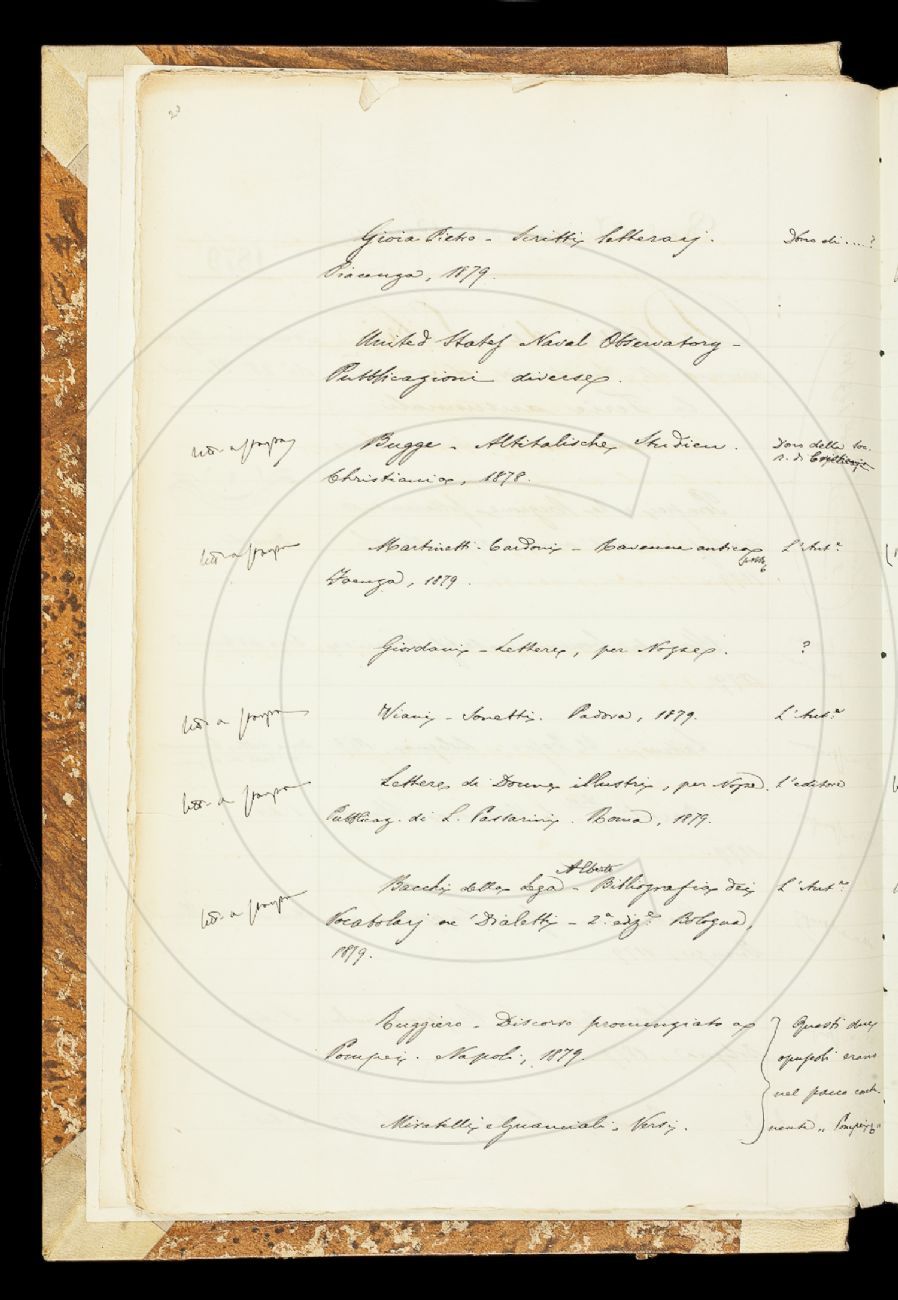 Gioia Pietro - Scritti letterarj. Dono di .... ?
Piacenza, 1879.
United States Naval Observatory -
Pubblicazioni diverse.
Bugge - Altitalische Studien. Dono della Soc.
Christiania, 1878. R. di
Martinetti-Cardoni - Ravenna antica L'Aut.e
Faenza, 1879.
Giordani - Lettere, per Nozze. ?
Viani - Sonetti. Padova, 1879. L'Aut.e
Lettere di Donne illustri, per Nozze. L'editore
Pubblicaz. di L. Passarini. Roma, 1879.
Alberto
Bacchi della Lega - Bibliografia dei L'Aut.e
Vocabolarj ne' Dialetti - 2.a ediz.e Bologna,
1879.
Ruggiero - Discorso pronunziato a Questi due
Pompei. Napoli, 1879 opuscoli erano
nel pacco conte-
Mirabelli e Guanciali. Versi. nente "Pompei"